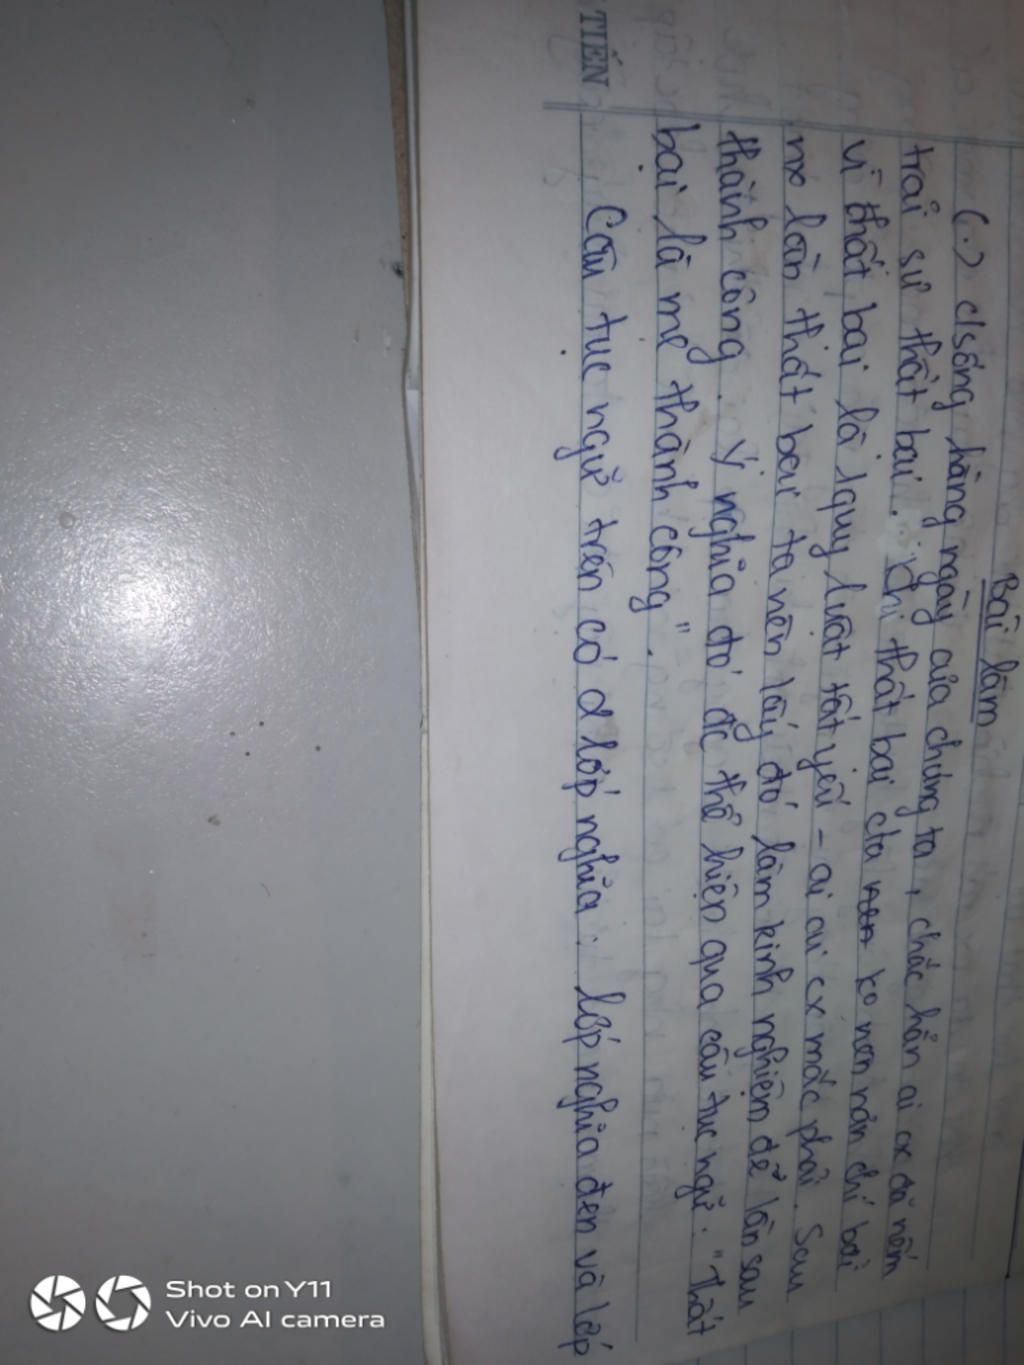 Bài làm
(.) c/sống hằng ngày của chúng ta, chắc hẳn ai cx đã nếm
trải sự thất bại. Khi thất bại cta ko nên nản chí bởi
vì thất bại là 1 quy luật tất yếu - ai ai cx mắc phải. Sau
nx lần thất bại ta nên lấy đó làm kinh nghiệm để lần sau
thành công. Ý nghĩa đó đc thể hiện qua câu tục ngữ: "Thất
bại là mẹ thành công".
Câu tục ngữ trên có 2 lớp nghĩa: lớp nghĩa đen và lớp
TIẾN
Shot on Y11
Vivo AI camera